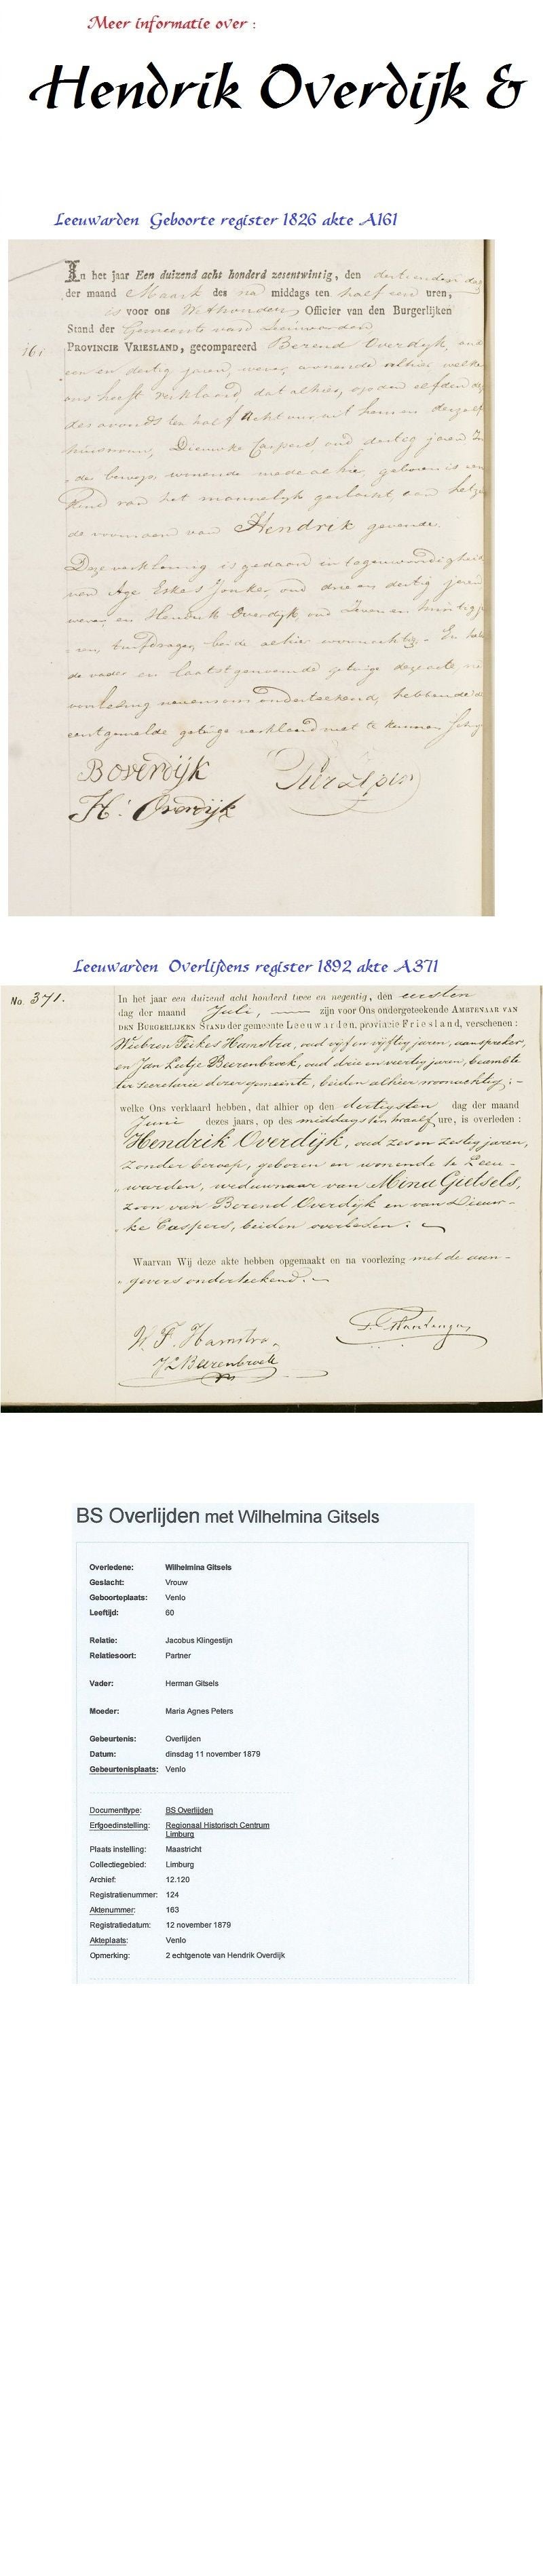 Meer informatie over :
Hendrik Overdijk &
Leeuwarden Geboorte register 1826 akte A161
In het jaar Een duizend acht honderd zesentwintig, den dertienden dag
der maand Maart des na middags ten half een uren,
is voor ons Wethouder, Officier van den Burgerlijken
Stand der Gemeente van Leeuwarden,
161
PROVINCIE VRIESLAND, gecompareerd Berend Overdyk, oud
een en dertig jaren, wever, wonende alhier welke
ons heeft verklaard, dat alhier, op den elfden
des avonds ten half acht uur uit hem en deszelfs
huisvrouw, Dieuwke Caspers, oud dertig jaren
der beroep, wonende mede alhier, geboren is een
Kind van het mannelyk geslacht, aan hetzelve
de voornaam van Hendrik gevende.
Deze verklaring is gedaan in tegenwoordigheid
van Age Eskes Jonker, oud drie en dertig jaren
wever, en Hendrik Overdyk, oud zeven en
turfdrager, beide alhier woonachtig. En
de vader en laatstgenoemde getuige deze acte, na
voorlezing nevens ons onderteekend, hebbende
eerstgemelde getuige verklaard niet te kunnen
B Overdijk
H: Overdijk
Leeuwarden Overlijdens register 1892 akte A371
No. 371.
In het jaar een duizend acht honderd twee en negentig, den eersten
dag der maand Juli, zijn voor Ons ondergeteekende AMBTENAAR VAN
DEN BURGERLIJKEN STAND der gemeente Leeuwarden, provincie Friesland, verschenen:
Wiebren Feikes Hamstra, oud vijf en vijftig jaren, aanspreker,
en Jan Luitje Buerenbroek, oud drie en veertig jaren, beambte
ter secretarie dezer gemeente, beiden alhier woonachtig; -
welke Ons verklaard hebben, dat alhier op den dertigsten dag der maand
Junii dezes jaars, op des middags ten twaalf ure, is overleden:
Hendrik Overdijk, oud zes en zestig jaren,
zonder beroep, geboren en wonende te Leeu-
warden, weduwnaar van Mina Gietsels,
zoon van Berend Overdijk en van Dieuw-
ke Caspers, beiden overleden.
Waarvan Wij deze akte hebben opgemaakt en na voorlezing met de aan-
gevers onderteekend.
W. F. Hamstra
J L Buerenbroek
BS Overlijden met Wilhelmina Gitsels
Overledene: Wilhelmina Gitsels
Geslacht: Vrouw
Geboorteplaats: Venlo
Leeftijd: 60
Relatie: Jacobus Klingestijn
Relatiesoort: Partner
Vader: Herman Gitsels
Moeder: Maria Agnes Peters
Gebeurtenis: Overlijden
Datum: dinsdag 11 november 1879
Gebeurtenisplaats: Venlo
Documenttype: BS Overlijden
Erfgoedinstelling: Regionaal Historisch Centrum
Limburg
Plaats instelling: Maastricht
Collectiegebied: Limburg
Archief: 12.120
Registratienummer: 124
Aktenummer: 163
Registratiedatum: 12 november 1879
Akteplaats: Venlo
Opmerking: 2 echtgenote van Hendrik Overdijk